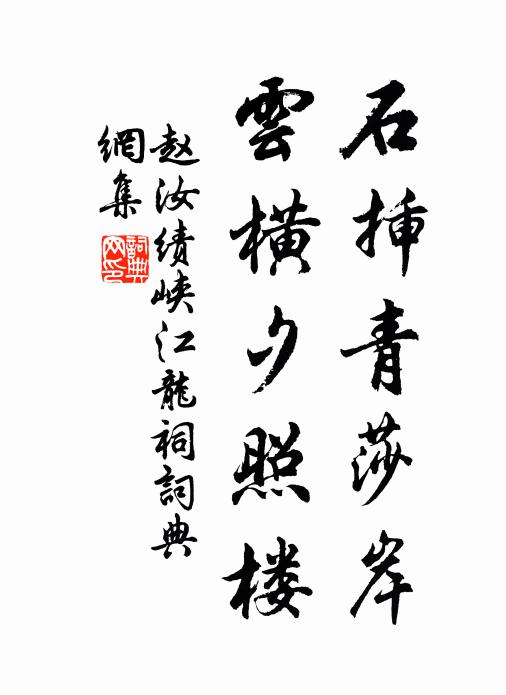 石挿青莎岸
雲橫夕照楼
赵汝绩峡江龍祠詞典
網集
詞典
网印